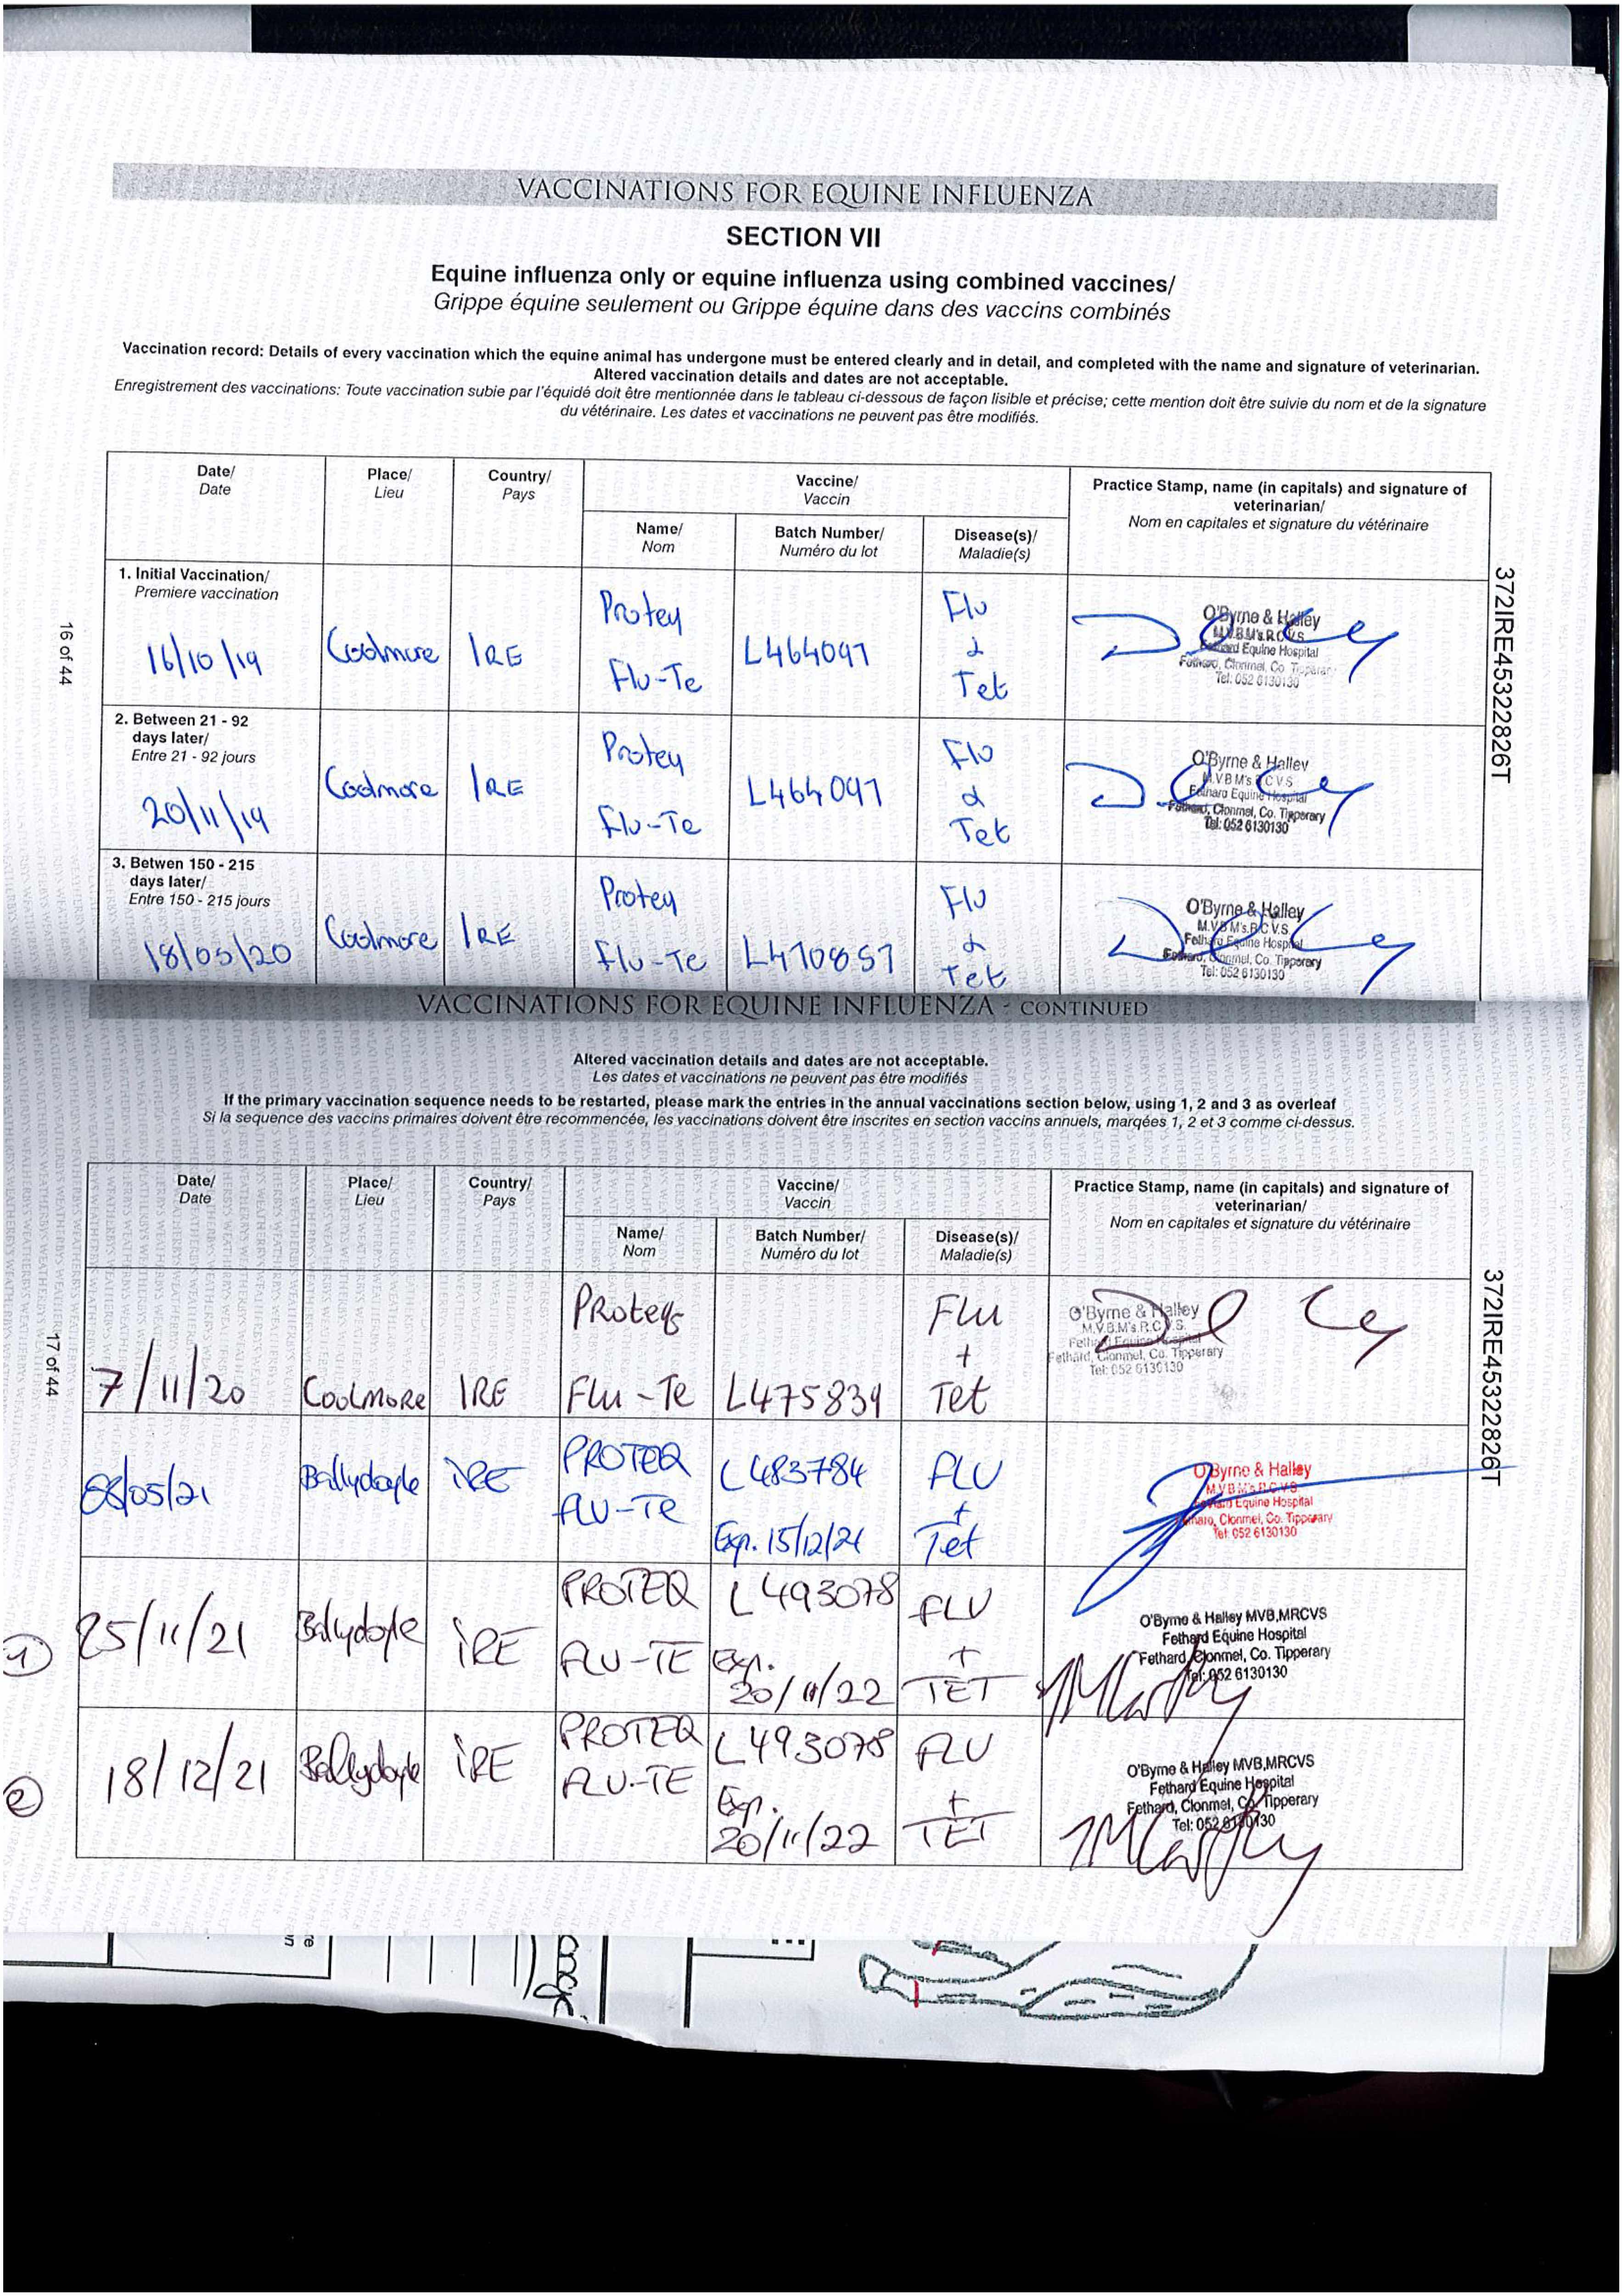 VACCINATIONS FOR EQUINE INFLUENZA
SECTION VII
Equine influenza only or equine influenza using combined vaccines/
Grippe équine seulement ou Grippe équine dans des vaccins combinés
Vaccination record: Details of every vaccination which the equine animal has undergone must be entered clearly and in detail, and completed with the name and signature of veterinarian.
Altered vaccination details and dates are not acceptable.
Enregistrement des vaccinations: Toute vaccination subie par l'équidé doit être mentionnée dans le tableau ci-dessous de façon lisible et précise; cette mention doit être suivie du nom et de la signature
du vétérinaire. Les dates et vaccinations ne peuvent pas être modifiés.
Date/ Place/ Country/ Vaccine/ Practice Stamp, name (in capitals) and signature of
Date Lieu Pays Vaccin veterinarian/
Nom en capitales et signature du vétérinaire
Name/ Batch Number/ Disease(s)/
Nom Numéro du lot Maladie(s)
1. Initial Vaccination/
Premiere vaccination
16/10/19 Coolmore IRE Protey Flu-Te L464097 Flu & Tet
O'Byrne & Halley
M.V.B.M's.R.C.V.S.
Fethard Equine Hospital
Fethard, Clonmel, Co. Tipperary
Tel: 052 6130130
2. Between 21 - 92
days later/
Entre 21 - 92 jours
20/11/19 Coolmore IRE Protey Flu-Te L464097 Flu & Tet
O'Byrne & Halley
M.V.B.M's.R.C.V.S.
Fethard Equine Hospital
Fethard, Clonmel, Co. Tipperary
Tel: 052 6130130
3. Betwen 150 - 215
days later/
Entre 150 - 215 jours
18/05/20 Coolmore IRE Protey Flu-Te L470857 Flu & Tet
O'Byrne & Halley
M.V.B.M's.R.C.V.S.
Fethard Equine Hospital
Fethard, Clonmel, Co. Tipperary
Tel: 052 6130130
16 of 44
372IRE45322826T
VACCINATIONS FOR EQUINE INFLUENZA - CONTINUED
Altered vaccination details and dates are not acceptable.
Les dates et vaccinations ne peuvent pas être modifiés
If the primary vaccination sequence needs to be restarted, please mark the entries in the annual vaccinations section below, using 1, 2 and 3 as overleaf
Si la sequence des vaccins primaires doivent être recommencée, les vaccinations doivent être inscrites en section vaccins annuels, marqées 1, 2 et 3 comme ci-dessus.
Date/ Place/ Country/ Vaccine/ Practice Stamp, name (in capitals) and signature of
Date Lieu Pays Vaccin veterinarian/
Nom en capitales et signature du vétérinaire
Name/ Batch Number/ Disease(s)/
Nom Numéro du lot Maladie(s)
7/11/20 Coolmore IRE Proteq Flu-Te L475839 Flu + Tet
O'Byrne & Halley
M.V.B.M's.R.C.V.S.
Fethard Equine Hospital
Fethard, Clonmel, Co. Tipperary
Tel: 052 6130130
08/05/21 Ballydoyle IRE PROTEQ FLU-TE L483784 Exp. 15/12/21 FLU + Tet
O'Byrne & Halley
M.V.B.M's.R.C.V.S.
Equine Hospital
Clonmel, Co. Tipperary
Tel: 052 6130130
1 25/11/21 Ballydoyle IRE PROTEQ FLU-TE L493078 Exp. 20/11/22 FLU + TET
O'Byrne & Halley MVB,MRCVS
Fethard Equine Hospital
Fethard, Clonmel, Co. Tipperary
Tel: 052 6130130
2 18/12/21 Ballydoyle IRE PROTEQ FLU-TE L493078 Exp. 20/11/22 FLU + TET
O'Byrne & Halley MVB,MRCVS
Fethard Equine Hospital
Fethard, Clonmel, Co. Tipperary
Tel: 052 6130130
17 of 44
372IRE45322826T